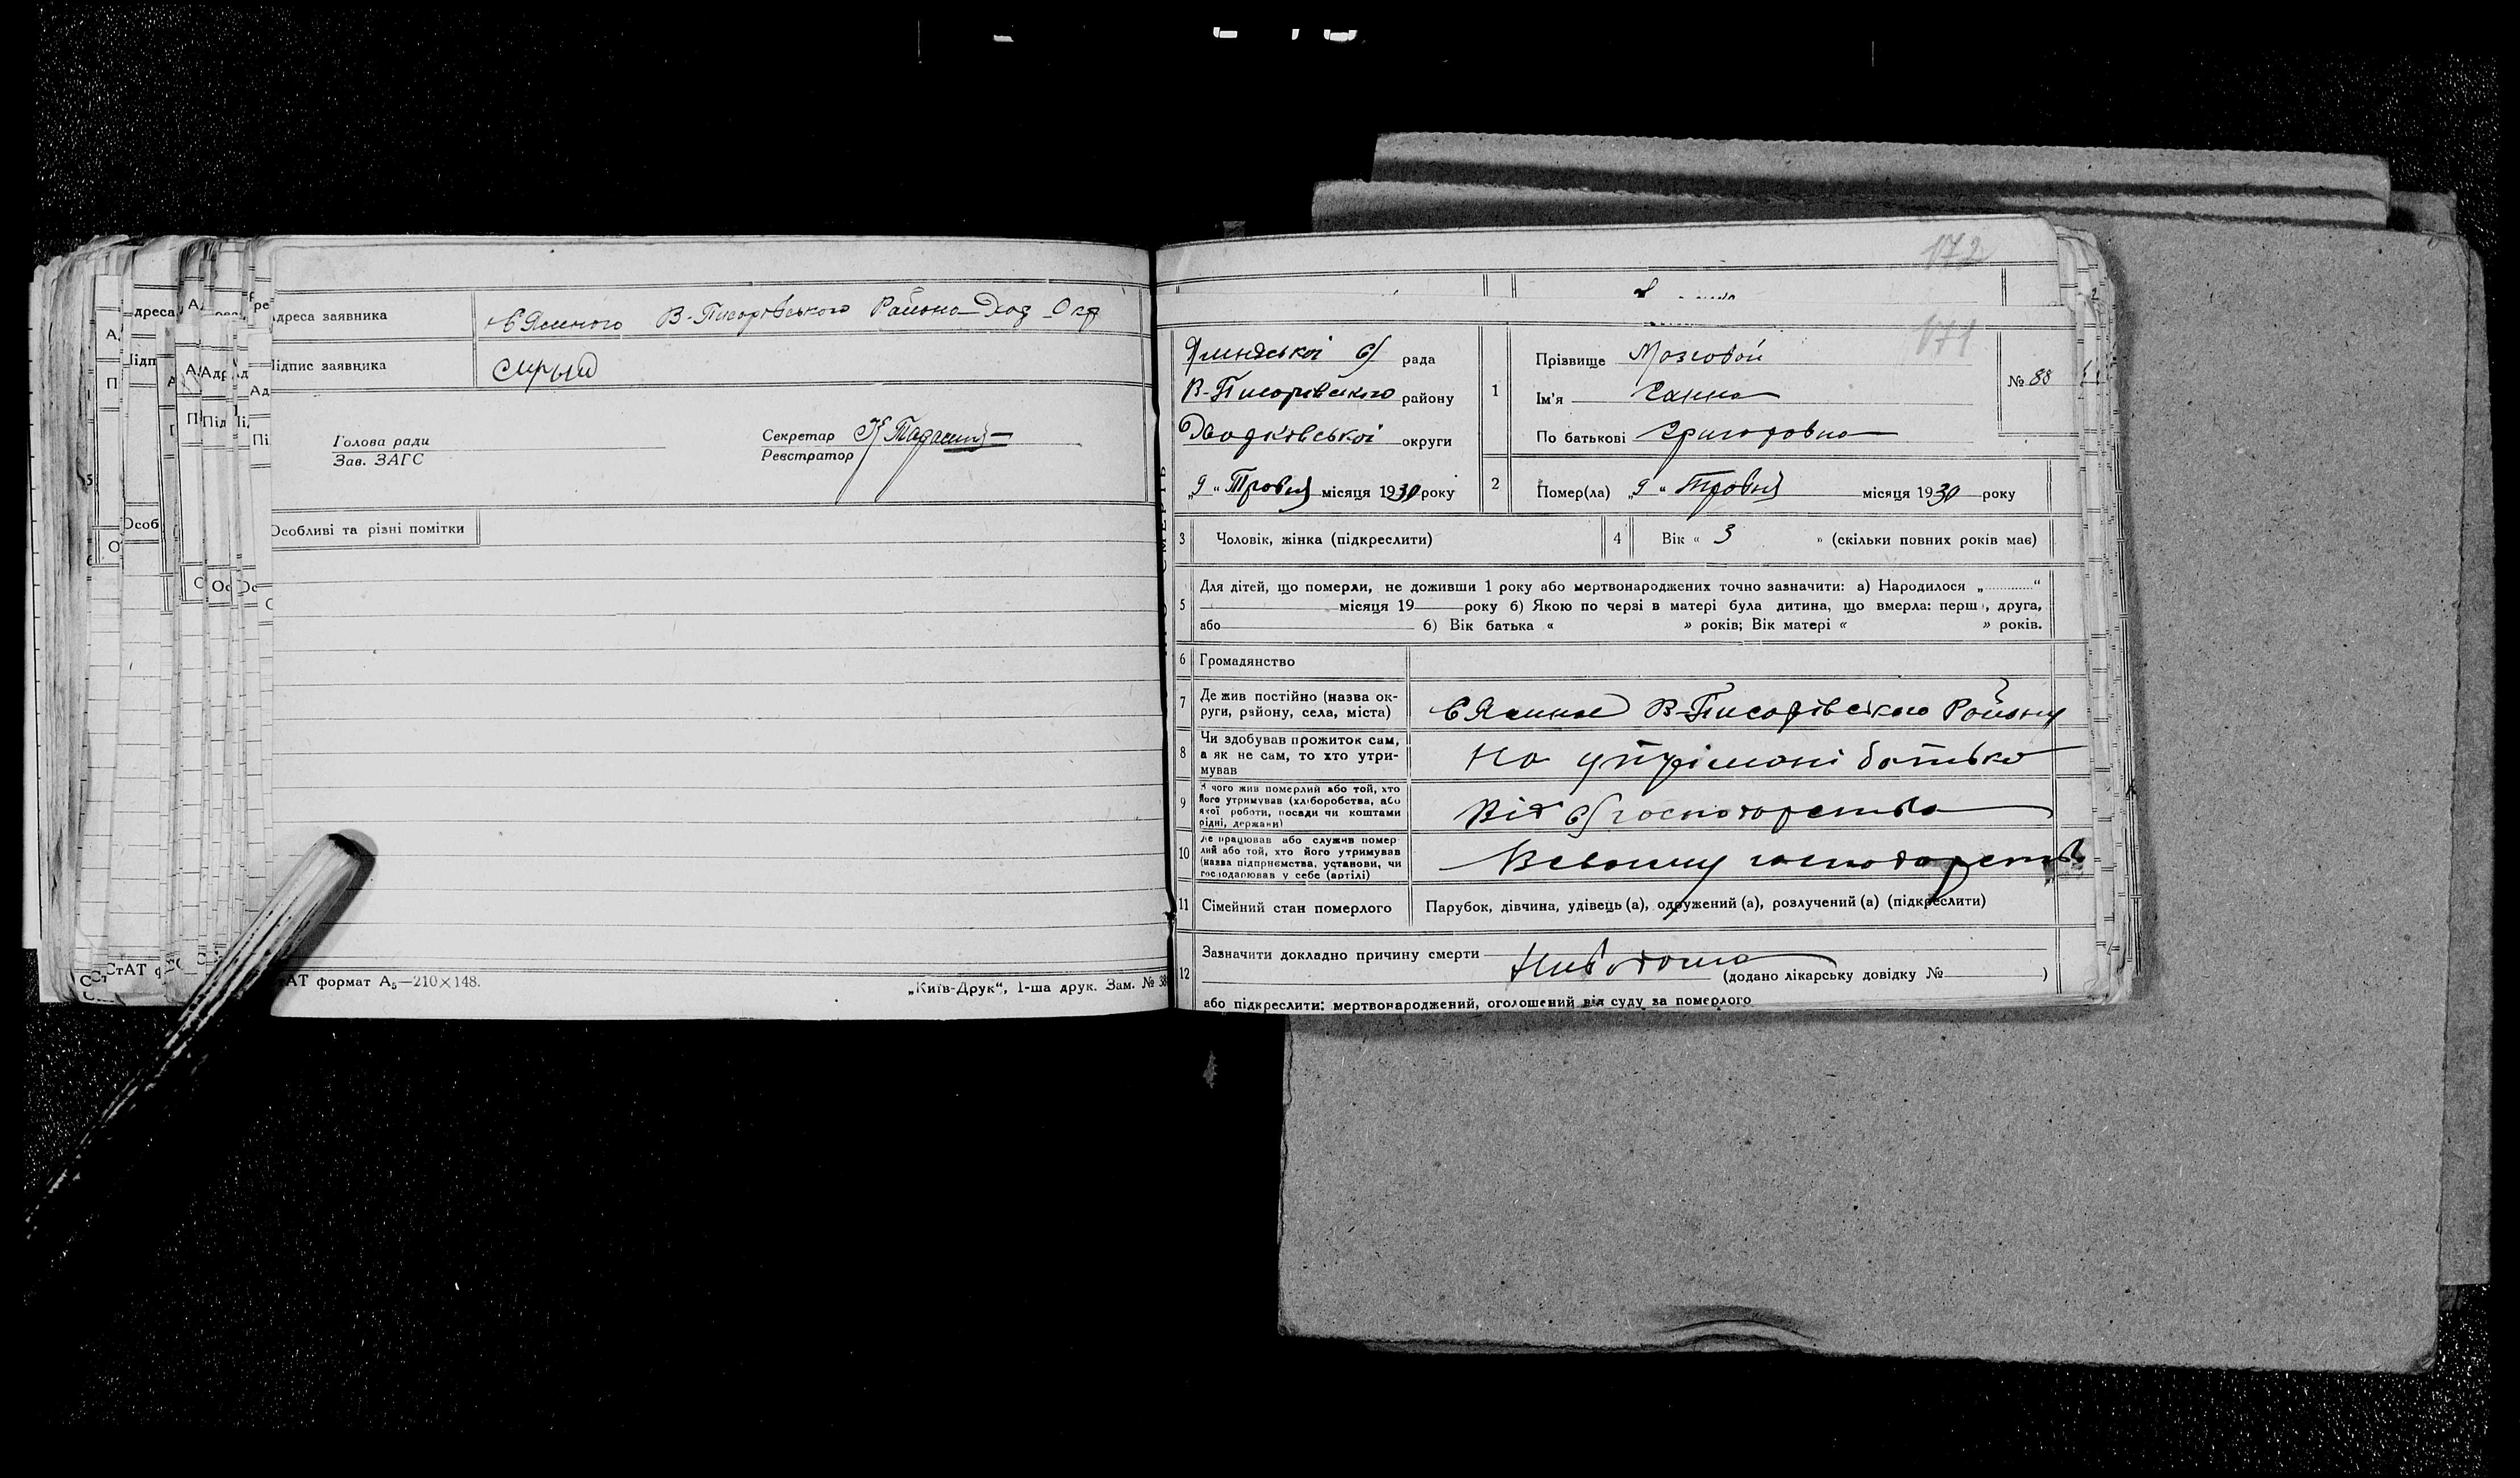 Адреса заявника
с Ясеного В-Писарівського Району Хар Окр
Підпис заявника
Голова ради
Зав. ЗАГС
Секретар
Реєстратор
Особливі та різні помітки
СтАТ формат А₅—210×148.
„Київ-Друк“, 1-ша друк. Зам. № 38
172
171
с/ рада
В-Писарівського району
округи
„9“ Травня місяця 1930 року
1
Прізвище Мозговой
Ім'я Ганна
По батькові Григоровна
№ 88
2
Помер(ла) „9“ Травня місяця 1930 року
3
Чоловік, жінка (підкреслити)
4
Вік « 3 » (скільки повних років має)
5
Для дітей, що померли, не доживши 1 року або мертвонароджених точно зазначити: а) Народилося „ “
місяця 19 року б) Якою по черзі в матері була дитина, що вмерла: перш , друга,
або б) Вік батька « » років; Вік матері « » років.
6
Громадянство
7
Де жив постійно (назва ок-
руги, району, села, міста)
с Ясенне В-Писарівського Району
8
Чи здобував прожиток сам,
а як не сам, то хто утри-
мував
На утрімані батька
9
З чого жив померлий або той, хто
його утримував (хліборобства, або
якої роботи, посади чи коштами
рідні, держави)
Від с/господарства
10
Де працював або служив помер
лий або той, хто його утримував
(назва підприємства, установи, чи
господарював у себе (артілі)
Всвоєму господарств
11
Сімейний стан померлого
Парубок, дівчина, удівець (а), одружений (а), розлучений (а) (підкреслити)
12
Зазначити докладно причину смерти
(додано лікарську довідку № )
або підкреслити: мертвонароджений, оголошений від суду за померлого